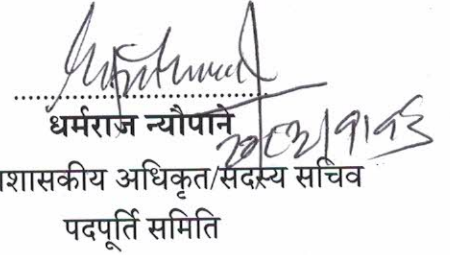 धर्मराज न्यौपाने
शासकीय अधिकृत/सदस्य सचिव
पदपूर्ति समिति